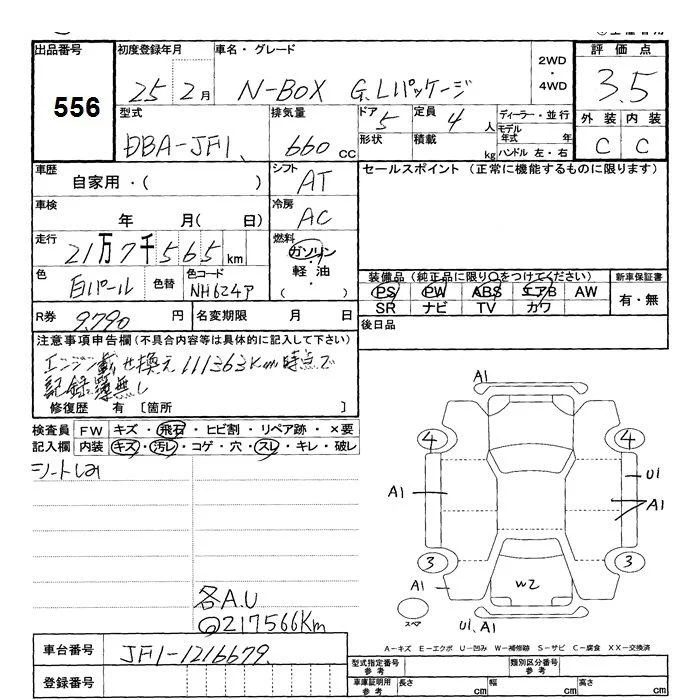 出品番号
556
初度登録年月
25年2月
車名・グレード
N-BOX G.Lパッケージ
2WD
・
4WD
評価点
3.5
外装 内装
C C
型式
DBA-JF1
排気量
660 cc
ドア 5
形状
定員 4 人
積載 kg
ディーラー・並行
モデル年式 年
ハンドル 左・右
車歴
自家用・( )
シフト
AT
セールスポイント (正常に機能するものに限ります)
車検
年 月( 日)
冷房
AC
走行
21万7千565km
燃料
ガソリン
軽油
・( )
色
白パール
色替
色コード
NH624P
装備品(純正品に限り○をつけてください)
PS PW ABS エアB AW
SR ナビ TV カワ
新車保証書
有・無
R券 9.790 円
名変期限 月 日
後日品
注意事項申告欄(不具合内容等は具体的に記入して下さい)
エンジン載せ換え111363Km時点で
記録簿無し
修復歴 有 〔箇所 〕
検査員 FW キズ・飛石・ヒビ割・リペア跡・×要
記入欄 内装 キズ・汚レ・コゲ・穴・スレ・キレ・破レ
シートしみ
各A.U
217566Km
A1
4 4
A1
U1
A1
3 3
A1
W2
スペア
U1、A1
A-キズ E-エクボ U-凹み W-補修跡 S-サビ C-腐食 XX-交換済
車台番号
JF1-1216679
登録番号
型式指定番号
参考
類別区分番号
参考
車庫証明用
参考
長さ cm
幅 cm
高さ cm